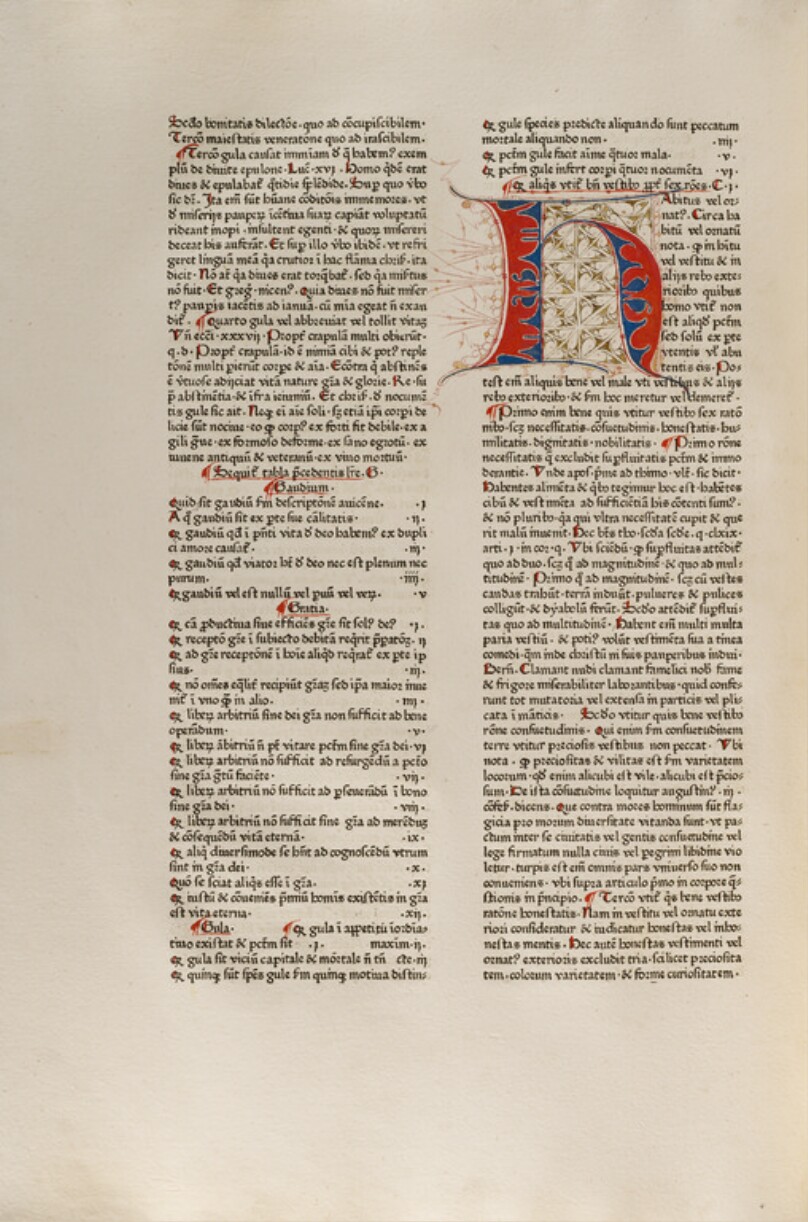 Secūdo bonitatis dilectōe· quo ad cōcupiscibilem·
Tercō maiestatis veneratōne quo ad irascibilem·
¶Tercō gula causat inmīam
plū de diuite epulone· Luē·xvj· Homo qdē erat
diues & epulabat̄ qͥtidie splēdide· Sup quo vbo
sic dē· Ita em̄ sūt hūane cōditōis inmemores· vt
rideant inopi· insultent egenti· & quoꝝ misereri
deceat his auferāt· Et sup illo vbo ibidē· vt refri
geret linguā meā qͣ crutior ī hac flāma chris̄· ita
dicit· Nō at̄ qͣ diues erat torqͣbat̄· sed qͣ mīsͥtus
nō fuit· Et greḡ· nicen⁹· Quia diues nō fuit miser
t⁹ paupis iacētis ad ianuā· cū mīa egeat n̄ exau
dit̄· ¶Quarto gula vel abbreuiat vel tollit vitaꝫ
Vn̄ ecc̄i·xxxvij· Propt̄ crapulā multi obierūt·
q·d· Propt̄ crapulā·id ē nimiā cibi & pot⁹ reple
tōnē multi pierūt corpe & aīa· Ecōtra qͥ abstinēs
ē vͥtuose adijciat vitā nature gr̄a & glorie·
p̄ abstinētia & īfra ieiuniū· Et chris̄·d· nocumē
tis gule sic ait· Neqꝫ ei aīe soli· sꝫ etiā ip̄i corpi de
licie sūt nociue· eo ꝙ corp⁹ ex forti fit debile· ex a
gili gͣue· ex formoso deforme· ex sano egrotū· ex
iuuene antiquū & veteranū· ex viuo mortuū·
¶Sequit̄ tabla p̄cedentis lr̄e· G·
¶Gaudium·
Quid sit gaudiū fm descriptōnē auicēne· ·j
A qͦ gaudiū sit ex pte sue cālitatis· ·ij·
Qꝫ gaudiū qd̄ ī pn̄ti vita d̄ deo habem⁹ ex dupli
ci amore causat̄· ·iij·
Qꝫ gaudiū qd̄ viator hꝫ d̄ deo nec est plenum nec
purum· ·iiij·
Qꝫ gaudiū vel est nullū vel puū vel veꝝ· ·v
¶Gratia·
Qꝫ cā pductiua siue efficiēs gr̄e sit sol⁹ de⁹ ·j·
Qꝫ receptō gr̄e ī subiecto debitā reqͥrit p̄patōꝫ· ij
Qꝫ ad gr̄e receptōnē ī hoīe aliqͥd reqͥrat̄ ex pte ip
sius· ·iij·
Qꝫ nō om̄es eqͣlit̄ recipiūt gr̄aꝫ sed ip̄a maior inue
nit̄ ī vno qͣꝫ in alio· ·iiij·
Qꝫ liberꝝ arbitriū sine dei gr̄a non sufficit ad bene
operādum· ·v·
Qꝫ liberꝝ arbitriū n̄ pt̄ vitare pctm̄ sine gr̄a dei·vj
Qꝫ liberꝝ arbitriū nō sufficit ad resurgēdū a pctō
sine gr̄a gͣtū faciēte· ·vij·
Qꝫ liberꝝ arbitriū nō sufficit ad pseuerādū ī bono
sine gr̄a dei· ·viij·
Qꝫ liberꝝ arbitriū nō sufficit sine gr̄a ad merēdū
& cōsequēdū vitā eternā· ·ix·
Qꝫ aliqͥ diuersimode se hn̄t ad cognoscēdū vtrum
sint in gr̄a dei· ·x·
Quō se sciat aliqͥs esse ī gr̄a· ·xj
Qꝫ iustū & cōueniēs p̄miū homīs existētis in gr̄a
est vita eterna· ·xij·
¶Gula· ¶Qꝫ gula ī appetitu īordīa-
tiuo existat & pctm̄ sit ·j· maxim·ij·
Qꝫ gula sit viciū capitale & mōrtale n̄ tn̄ ·iij
Qꝫ quīqꝫ sūt spēs gule fm quīqꝫ motiua distin-
Qꝫ gule species predicte aliquando sunt peccatum
mortale aliquando non· ·iiij·
Qꝫ pctm̄ gule facit aīme qͣtuor mala· ·v·
Qꝫ pctm̄ gule infert corpi qͣtuor nocumēta ·vj·
¶Qꝫ aliqͥs vtit̄ bn̄ vestibꝰ ꝓpt̄ sex rōes· C·j·
HAbitus vel or-
nat⁹· Circa ha
bitū vel ornatū
nota· ꝙ in hītu
vel vestitu & in
alijs rebꝰ exte-
rioribꝰ quibus
homo vtit̄ non
est aliqͥd pctm̄
sed solū ex pte
vtentis vl̄ abu
tentis eis· Po-
test em̄ aliquis bene vel male vti vestibus & alijs
rebꝰ exterioribꝰ· & fm hoc meretur vel demeret̄·
¶Primo enim bene quis vtitur vestibꝰ sex ratō
nibꝰ·scꝫ necessitatis·cōsuetudinis·honestatis·hu-
militatis·dignitatis·nobilitatis· ¶Primo rōne
necessitatis qͥ excludit supfluitatis pctm̄ & immo
derantie· Vnde apos·pͥme ad thimo·vlt̄·sic dicit·
Habentes alimēta & qͥbꝰ tegimur hoc est·habētes
cibū & vestimēta ad sufficiētiā his cōtenti sum⁹·
& nō pluribꝰ·qͣ qui vltra necessitatē cupit & que
rit malū inuenit·
arti·j·in cor·q· Vbi sciēdū ꝙ supfluitas attēdit̄
quo ad duo·scꝫ qͦ ad magnitudinē·& quo ad mul-
titudinē· Primo qͦ ad magnitudinē· scꝫ cū vestes
caudas trahūt·terrā induūt·pulueres & pulices
colligūt·& dyabolū ferūt· Scd̄o attēdit̄ supflui-
tas quo ad multitudinē· Habent em̄ multi multa
paria vestiū·& poti⁹ volūt vestimēta sua a tinea
comedi·qͣm inde christū in suis pauperibus indui·
Bern̄· Clamant nudi clamant famelici nob̄ fame
& frigore miserabiliter laborantibus·quid confe-
runt tot mutatoria vel extensa in particis vel pli-
cata ī manticis· Scd̄o vtitur quis bene vestibꝰ
rōne consuetudinis· Qui enim fm consuetudinem
terre vtitur preciosis vestibus non peccat· Vbi
nota· ꝙ preciositas & vilitas est fm varietatem
locorum·qd̄ enim alicubi est vile·alicubi est p̄cio-
sum· De ista cōsuetudine loquitur augustin⁹·iij·
cōfes̄·dicens· Que contra mores hominum sūt fla-
gicia pro morum diuersitate vitanda sunt·vt pa-
ctum inter se ciuitatis vel gentis consuetudine vel
lege firmatum nulla ciuis vel pegrini libidine vio
letur·turpis est em̄ omnis pars vniuerso suo non
conueniens· vbi supra articulo pͥmo in corpore qͣ-
stionis in pͥncipio· ¶Tercō vtit̄ qͥs bene vestibꝰ
ratōne honestatis· Nam in vestitu vel ornatu exte
riori consideratur & iudicatur honestas vel inho-
nestas mentis· Hec autē honestas vestimenti vel
ornat⁹ exterioris excludit tria·scilicet preciosita
tem·colorum varietatem·& forme curiositatem·